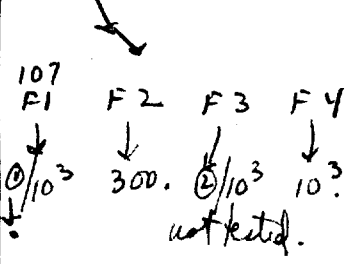 107
F1 F2 F3 F4
①/10³ 300. ②/10³ 10³.
not tested.